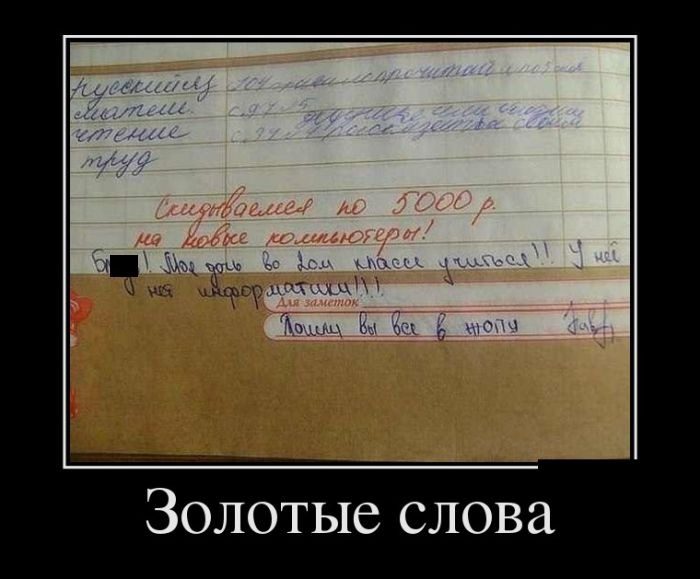 Русский яз 104 правило прочитай и
матем. с.97 №5
чтение с.34
труд
Скидываемся по 5000 р.
на новые компьютеры!
Бл ! Моя дочь во 2ом классе учиться!! У неё
нет информатики!!!
Для заметок
Пошли вы все в жопу
Золотые слова